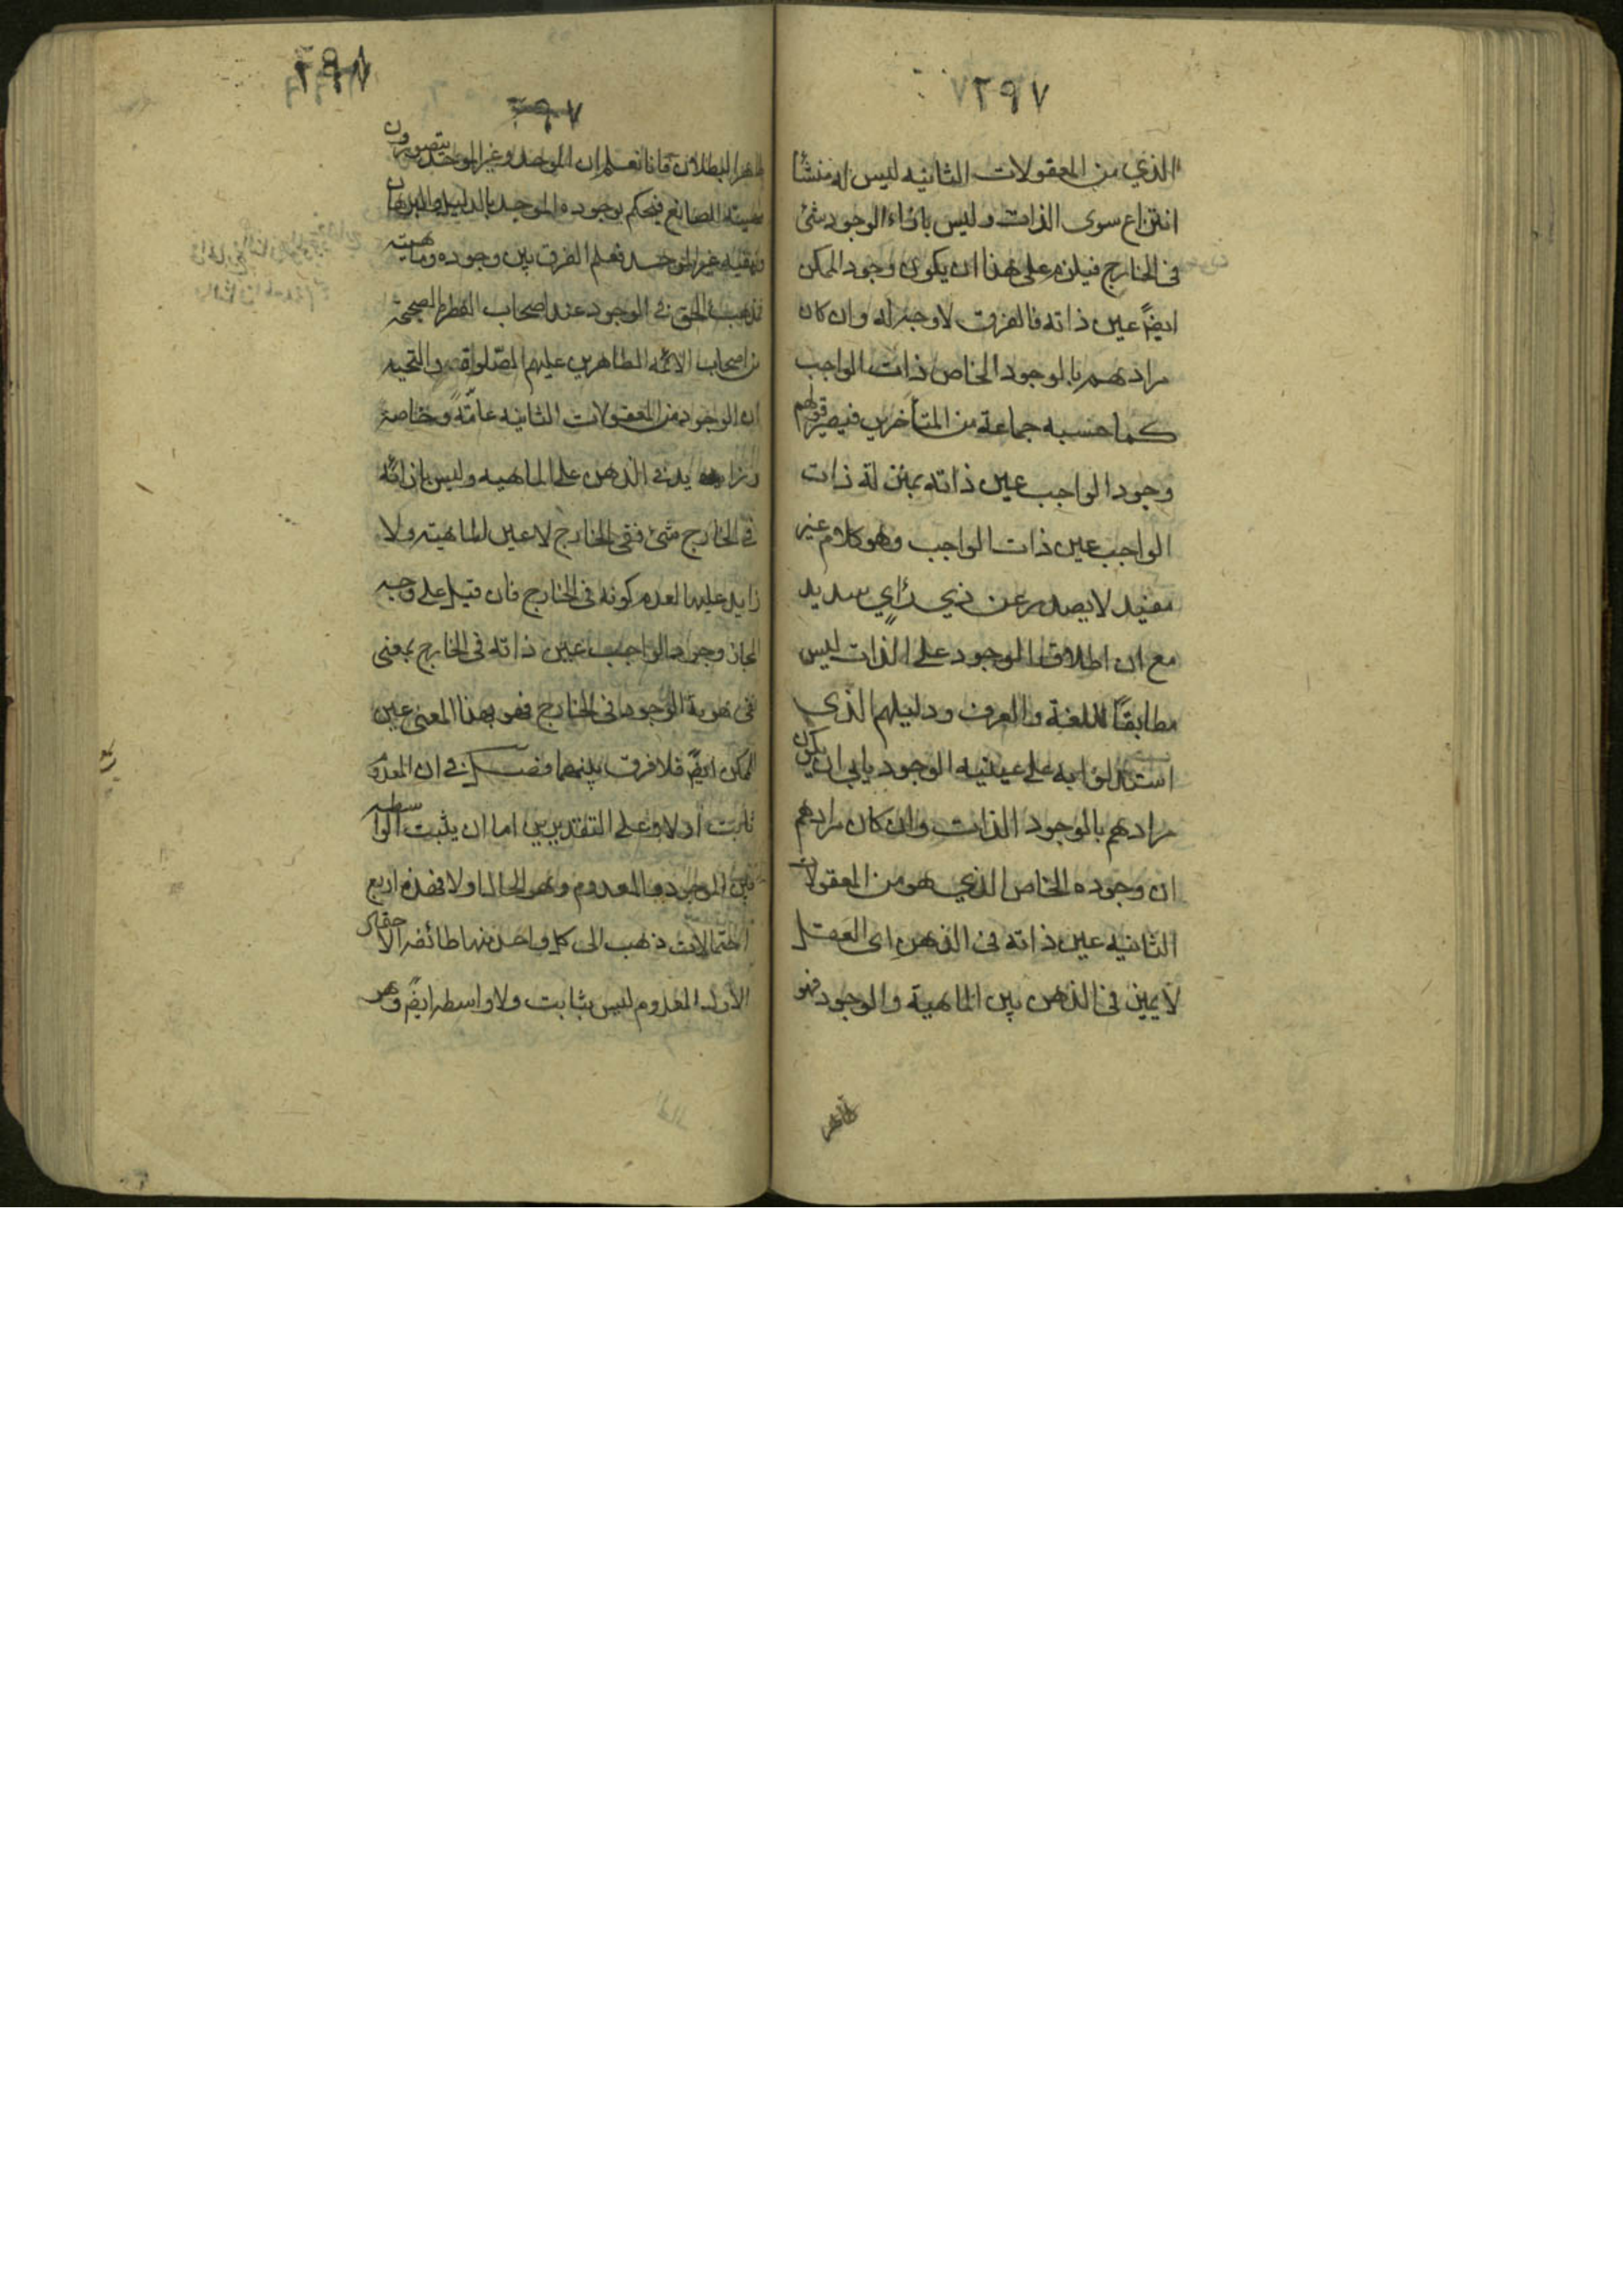 ٢٩٧
الذي من المعقولات الثانيه ليس له منشأ
انتزاع سوى الذات وليس بازاء الوجود شئ
في الخارج فيلزم على هذا ان يكون وجود الممكن
ايضً عين ذاته فالفرق لا وجه له وان كان
مرادهم بالوجود الخاص ذات الواجب
كما حسبه جماعة من المتأخرين فيصير قولهم
وجود الواجب عين ذاته بمنزلة ذات
الواجب عين ذات الواجب وهو كلام غير
مفيد لا يصدر عن ذي رأي سديد
مع ان اطلاق الوجود على الذات ليس
مطابقاً للغة والعرف ودليلهم الذي
استدلوا به على عينيه الوجود يابى ان يكون
مرادهم بالوجود الذات وان كان مرادهم
ان وجوده الخاص الذي هو من المعقولات
الثانيه عين ذاته في الذهن اى العقل
لا يميز في الذهن بين الماهية والوجود فهو
ظاهر
٢٩٨
٢٩٧
ظاهر البطلان فانا نعلم ان الموحد وغير الموحد يتصورون
مهية الصانع فيحكم بوجوده الموحد بالدليل والبرهان
غير الموحد فعلم الفرق بين وجوده وماهيته
فمذهب الحق في الوجود عند اصحاب الصحيحة
من اصحاب الائمه الطاهرين عليهم الصلوة والتحيه
ان الوجود من المعقولات الثانيه عامّةً وخاصة
وزايد في الذهن على الماهيه وليس بازائه
في الخارج شئ ففي الخارج لا عين للماهيته ولا
زايد عليها لعدم كونه في الخارج فان قيل على وجه
المجاز وجود الواجب عين ذاته في الخارج بمعنى
نفى هوية الوجود في الخارج فهو بهذا المعنى عين
الممكن ايضً فلا فرق بينهما فصل في ان المعدوم
ثابت أو لا وعلى التقديرين اما ان يثبت الواسطه
بين الموجود والمعدوم وهو الحال او لا فهذه اربع
احتمالات ذهب الى كل واحد منها طائفه الاحتمال
الاول المعدوم ليس بثابت ولا واسطه ايضً وهو